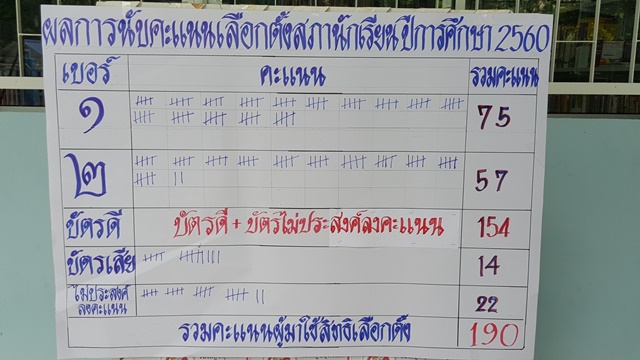 ผลการนับคะแนนเลือกตั้งสภานักเรียน ปีการศึกษา 2560
เบอร์ คะแนน รวมคะแนน
๑ 75
๒ 57
บัตรดี บัตรดี + บัตรไม่ประสงค์ลงคะแนน 154
บัตรเสีย 14
ไม่ประสงค์
ลงคะแนน 22
รวมคะแนนผู้มาใช้สิทธิเลือกตั้ง 190